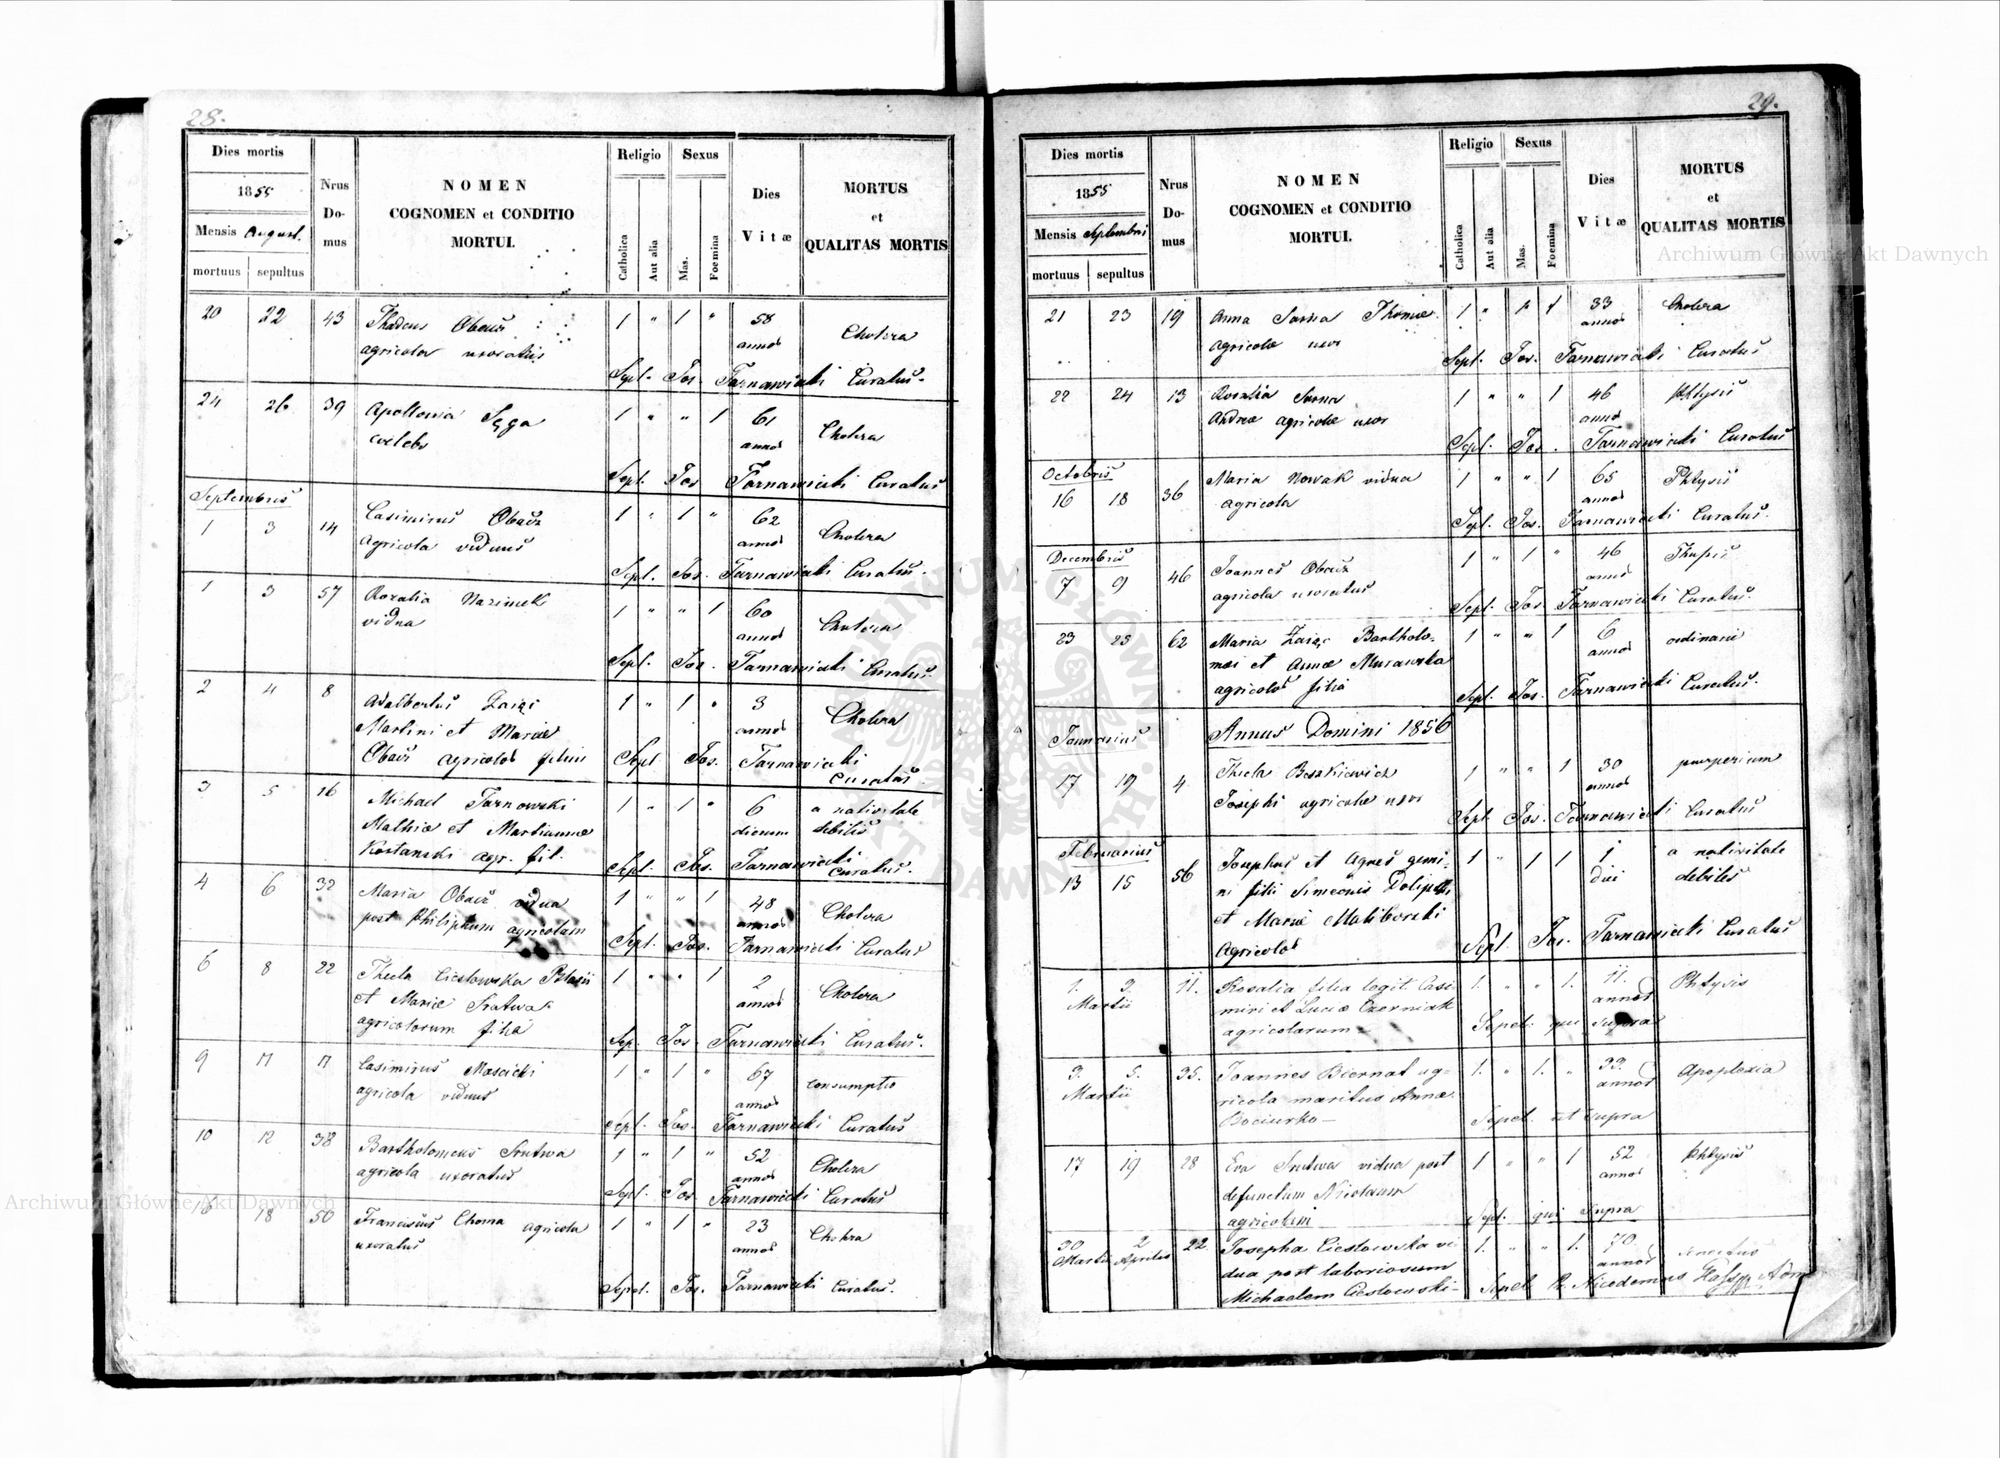 28.
Dies mortis
1855
Mensis August.
mortuus sepultus
Nrus Domus
NOMEN
COGNOMEN et CONDITIO
MORTUI.
Religio
Catholica
Aut alia
Sexus
Mas.
Foemina
Dies
Vitæ
MORTUS
et
QUALITAS MORTIS
20 22 43 Thadeus Obacz 1 " 1 " 58
agricola uxoratus annos Cholera
Sepl. Jos. Tarnawiecki Curatus.
24 26 39 Apollonia Sęga 1 " " 1 61
celebs annos Cholera
Sepl. Jos Tarnawiecki Curatus
Septembris
1 3 14 Casimirus Obacz 1 " 1 " 62
Agricola viduus annos Cholera
Sept. Jos. Tarnawiecki Curatus.
1 3 57 Rozalia Nazimek 1 " " 1 60
vidua annos Cholera
Sepl. Jos. Tarnawiecki Curatus.
2 4 8 Adalbertus Zając 1 " 1 " 3
Martini et Mariæ annos Cholera
Obacz agricolos filius Sepl Jos. Tarnawiecki
Curatus.
3 5 16 Michael Tarnowski 1 " 1 " 6 a nativitate
Mathiæ et Martiannæ dierum debilis
Kostanski agr. fil. Sepl. Jos. Tarnawiecki
Curatus.
4 6 32 Maria Obacz vidua 1 " " 1 48
post Philippum agricolam annos Cholera
Sept. Jos. Tarnawiecki Curatus
6 8 22 Thecla Cieslowska Blasii 1 " " 1 2
et Mariæ Srutwa annos Cholera
agricolorum filia Sep. Jos Tarnawiecki Curatus.
9 11 11 Casimirus Moscicki 1 " 1 " 67
agricola viduus annos consumptio
Sepl. Jos. Tarnawiecki Curatus
10 12 38 Bartholomeus Srutwa 1 " 1 " 52
agricola uxoratus annos Cholera
Sepl. Jos Tarnawiecki Curatus
16 18 50 Franciscus Choma agricola 1 " 1 " 23
uxoratus annos Cholera
Sepel. Jos. Tarnawiecki Curatus.
29.
Dies mortis
1855
Mensis Septembris
mortuus sepultus
Nrus Domus
NOMEN
COGNOMEN et CONDITIO
MORTUI.
Religio
Catholica
Aut alia
Sexus
Mas.
Foemina
Dies
Vitæ
MORTUS
et
QUALITAS MORTIS
21 23 19 Anna Sarna Thomæ 1 " 1 33 Cholera
Agricolæ uxor annos
Sepl. Jos. Tarnawiecki Curatus
22 24 13 Rozalia Sarna 1 " " 1 46 Phtysis
Andreæ agricolæ uxor annos
Sepl. Jos. Tarnawiecki Curatus
Octobris
16 18 36 Maria Nowak vidua 1 " " 1 65 Phtysis
agricola annos
Sepl. Jos. Tarnawiecki Curatus.
Decembris
7 9 46 Joannes Obacz 1 " 1 " 46
agricola uxoratus annos
Sepl. Jos. Tarnawiecki Curatus.
23 25 62 Maria Zając Bartholo- 1 " " 1 6 ordinarie
mæi et Annæ Murawska annos
agricolos filia Sepl. Jos. Tarnawiecki Curatus.
Annus Domini 1856
Januarius
17 19 4 Thecla Beszkiewicz 1 " " 1 30 puerperium
Josephi agricolæ uxor annos
Sepl. Jos. Tarnawiecki Curatus
Februarius
13 15 56 Josephus et Agnes gemi- 1 " 1 1 1 a nativitate
ni filii Simeonis Dolipski diei debiles
et Mariæ Maliborski
Agricolos Sepl. Jos. Tarnawiecki Curatus
1. 3. 11. Rosalia filia legit Casi 1. " " 1. 11. Phtysis
Martii miri et Luciæ Czerniak annos
agricolarum Sepel. qui supra
3. 5. 35. Joannes Biernat ag- 1. " 1. " 33. Apoplexia
Martii ricola maritus Annæ annos
Bociurko Sepel. ut supra
17 19 28 Eva Srutwa vidua post 1 " " 1 52 Phtysis
defunctum Nicolaum annos
agricolam Sepl. qui supra
30 2 22. Josepha Cieslowska vi 1. " " 1. 70. senectus
Martii Aprilis dua post laboriosum annos
Michaelem Cieslowski Sepel P. Nicodemus Adm
ARCHIWUM GŁÓWNE AKT DAWNYCH
Archiwum Główne Akt Dawnych
Archiwum Główne Akt Dawnych